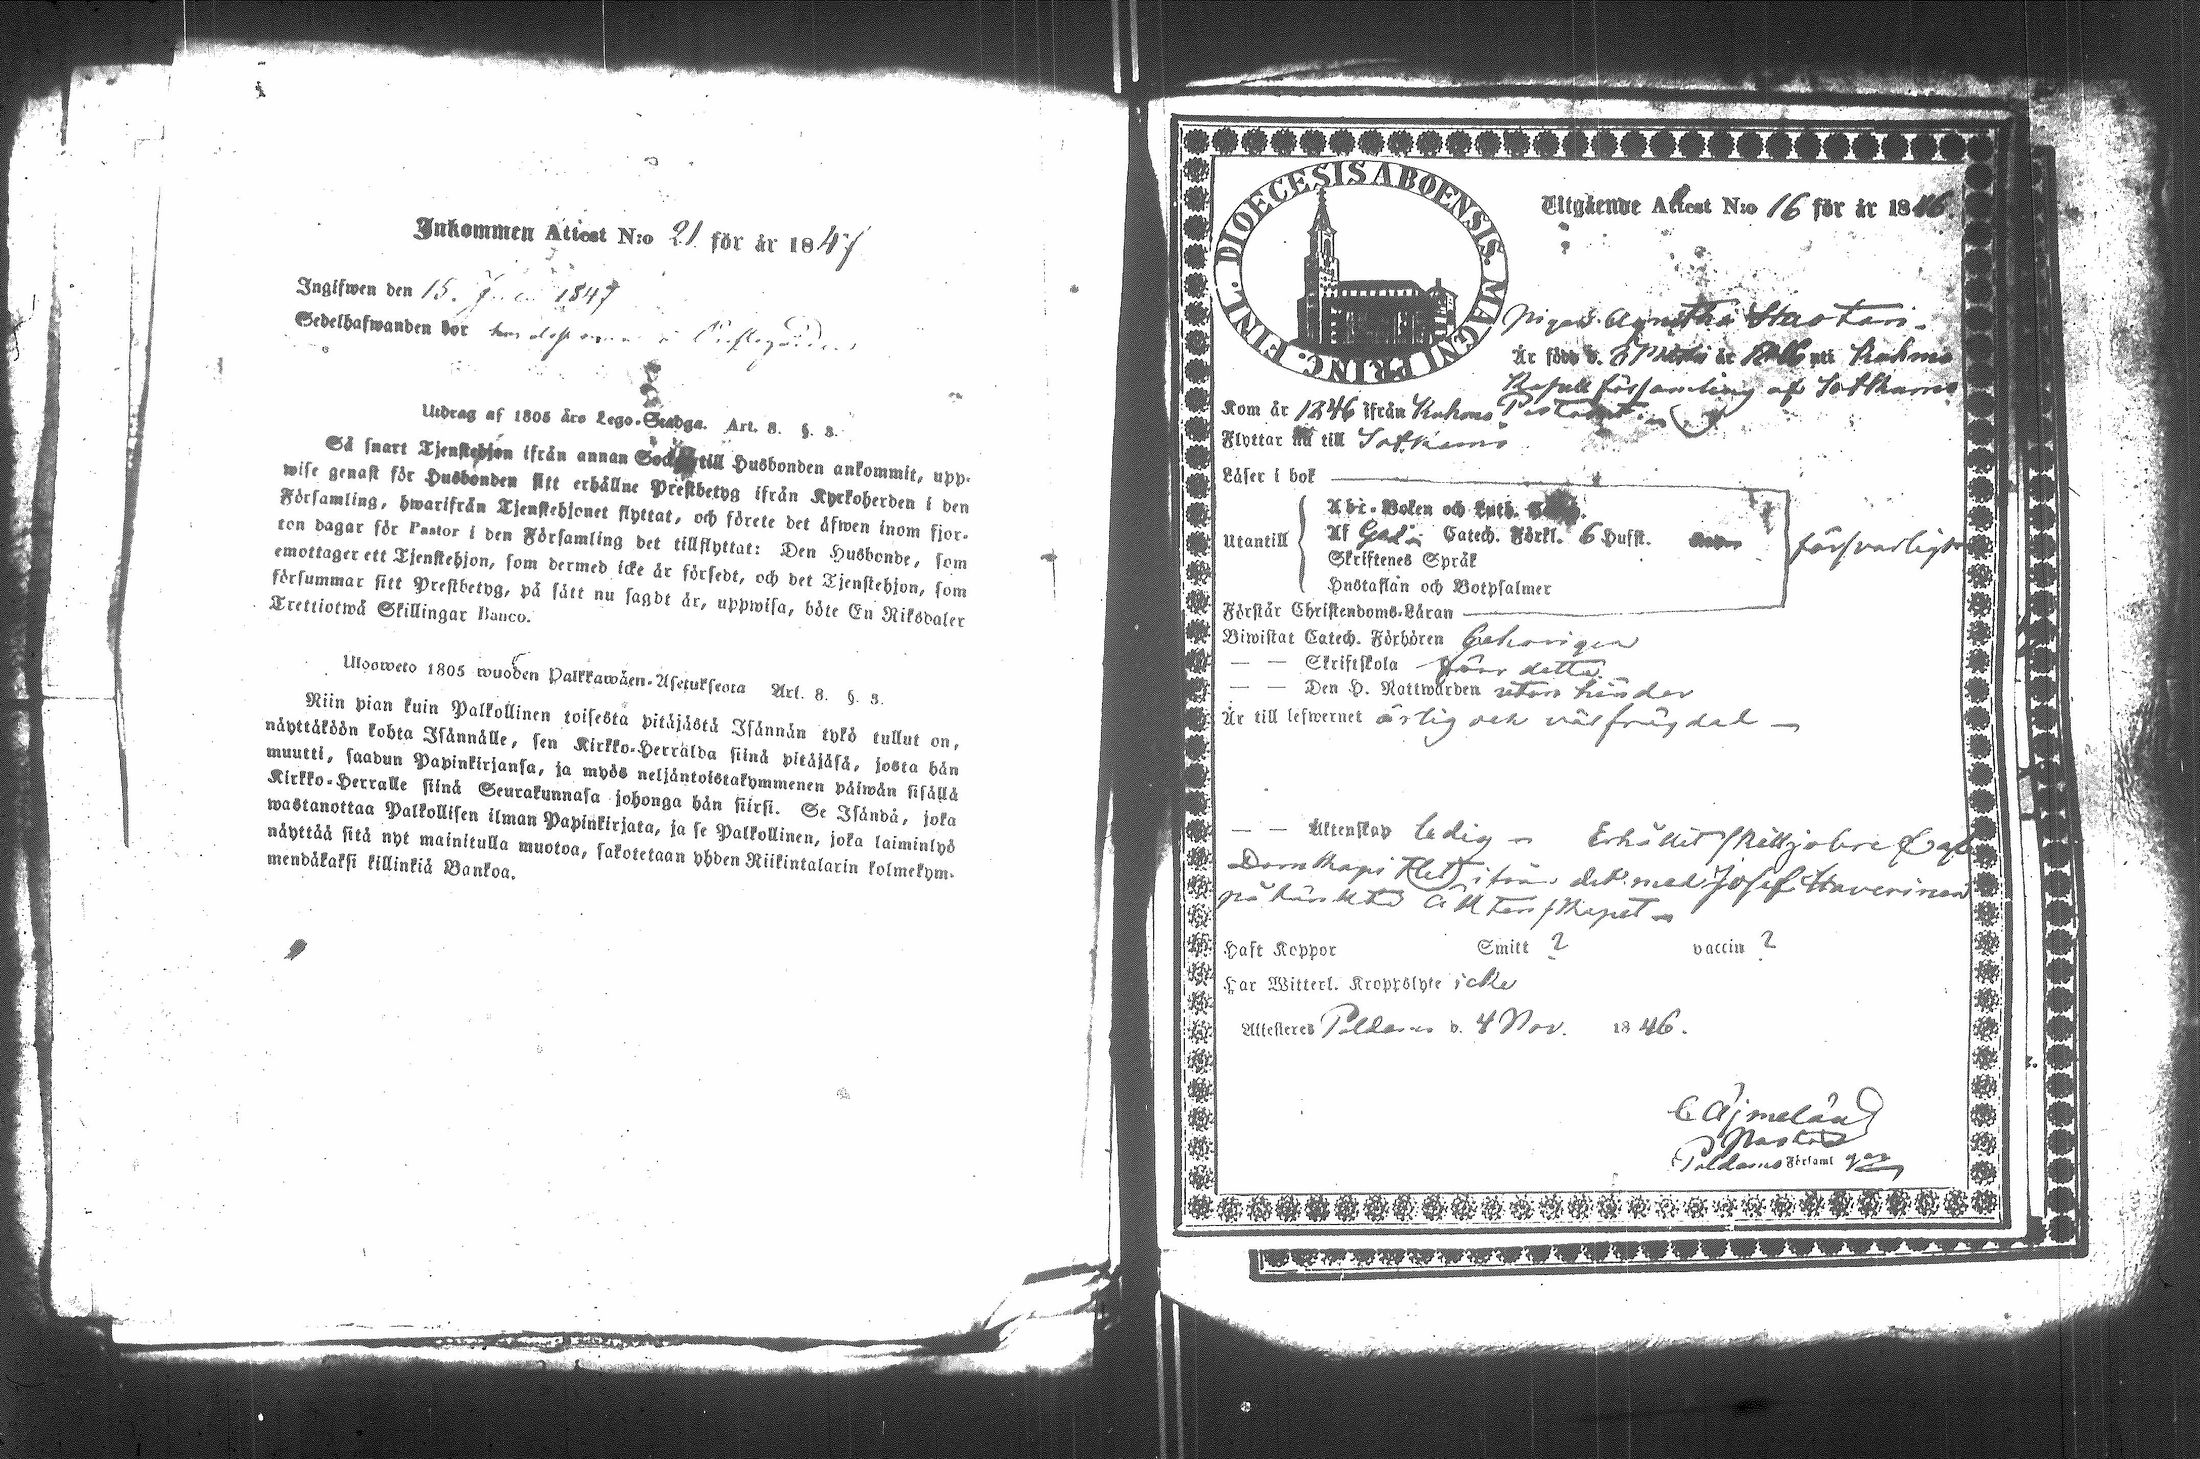 Inkommen Attest N:o 21 för år 1847
Ingifwen den 15. 1847
Sedelhafwanden bor hos
Utdrag af 1805 års Lego-Stadga. Art. 8. §. 3.
Så snart Tjenstehjon ifrån annan Sochn till Husbonden ankommit, upp-
wise genast för Husbonden sitt erhållne Prestbetyg ifrån Kyrkoherden i den
Församling, hwarifrån Tjenstehjonet flyttat, och förete det äfwen inom fjor-
ton dagar för Pastor i den Församling det tillflyttat: Den Husbonde, som
emottager ett Tjenstehjon, som dermed icke är försedt, och det Tjenstehjon, som
försummar sitt Prestbetyg, på sätt nu sagdt är, uppwisa, böte En Riksdaler
Trettiotwå Skillingar Banco.
Ulosweto 1805 wuoden Palkkawäen-Asetuksesta Art. 8. §. 3.
Niin pian kuin Palkollinen toisesta pitäjästä Isännän tykö tullut on,
näyttäköön kohta Isännälle, sen Kirkko-Herralda siinä pitäjäsä, josta hän
muutti, saadun Papinkirjansa, ja myös neljäntoistakymmenen päiwän sisällä
Kirkko-Herralle siinä Seurakunnasa johonga hän siirsi. Se Isändä, joka
wastanottaa Palkollisen ilman Papinkirjata, ja se Palkollinen, joka laiminlyö
näyttää sitä nyt mainitulla muotoa, sakotetaan yhden Riikintalarin kolmekym-
mendäkaksi killinkiä Bankoa.
FINL. DIOECESIS ABOENSIS. MAGNI PRINC.
Utgående Attest N:o 16 för år 1846.
Pigan Agnetha
Är född d. 8 år uti Kuhmo
Kapell församling af Sotkamo
Kom år 1846 ifrån Kuhmo
Flyttar nu till Sotkamo
Läser i bok
Utantill
Abc-Boken och Luth. Catech.
Af Catech. Förkl. 6 Hufst.
Skriftenes Språk
Hustaflan och Botpsalmer
försvarligt
Förstår Christendoms-Läran
Biwistat Catech. Förhören behörigen
— — Skriftskola förr detta
— — Den H. Nattwarden utan hinder
Är till lefwernet ärlig och välfrägdad —
— — Äktenskap ledig — Erhållit skilljobref af
Domkapitlet ifrån det med Josef Haverinen
påtänkta Äktenskapet —
Haft Koppor Smitt ? vaccin ?
Har Witterl. Kroppslyte icke
Attesteras Paldamo d. 4 Nov. 1846.
Pastor
Paldamo Församl